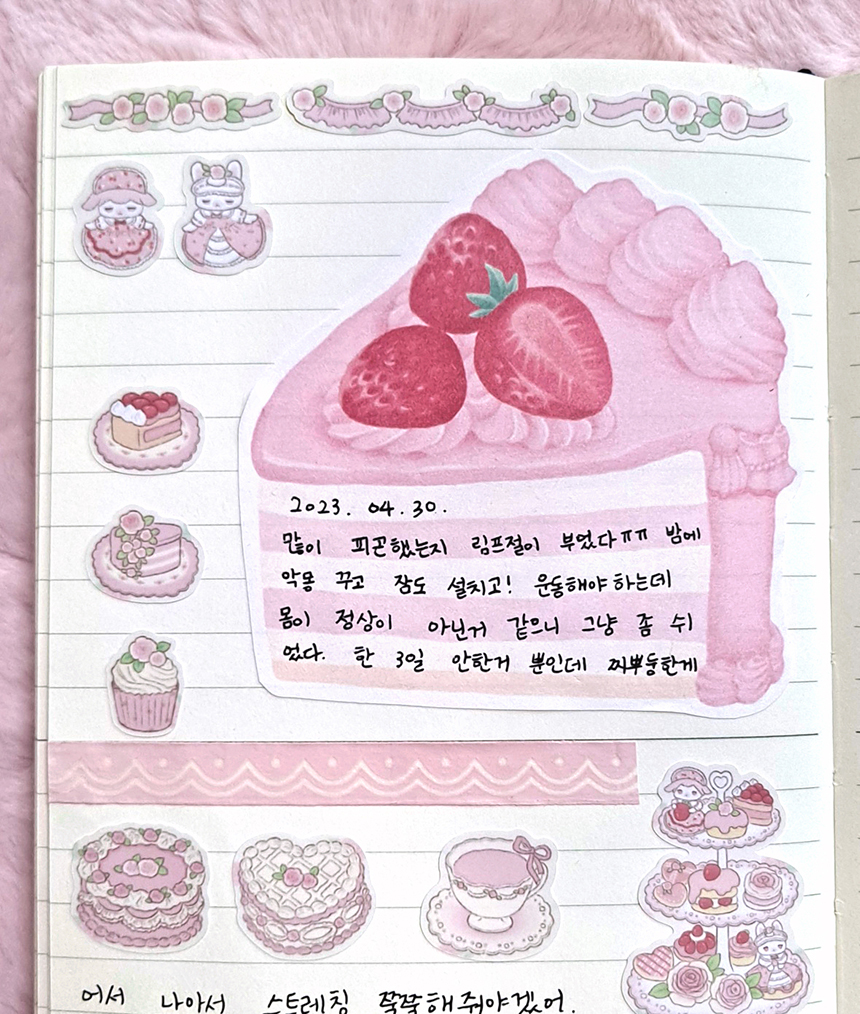 2023. 04. 30.
많이 피곤했는지 림프절이 부었다ㅠㅠ 밤에
악몽 꾸고 잠도 설치고! 운동해야 하는데
몸이 정상이 아닌거 같으니 그냥 좀 쉬
었다. 한 3일 안한거 뿐인데 찌뿌둥한게
어서 나아서 스트레칭 쭉쭉해줘야겠어.